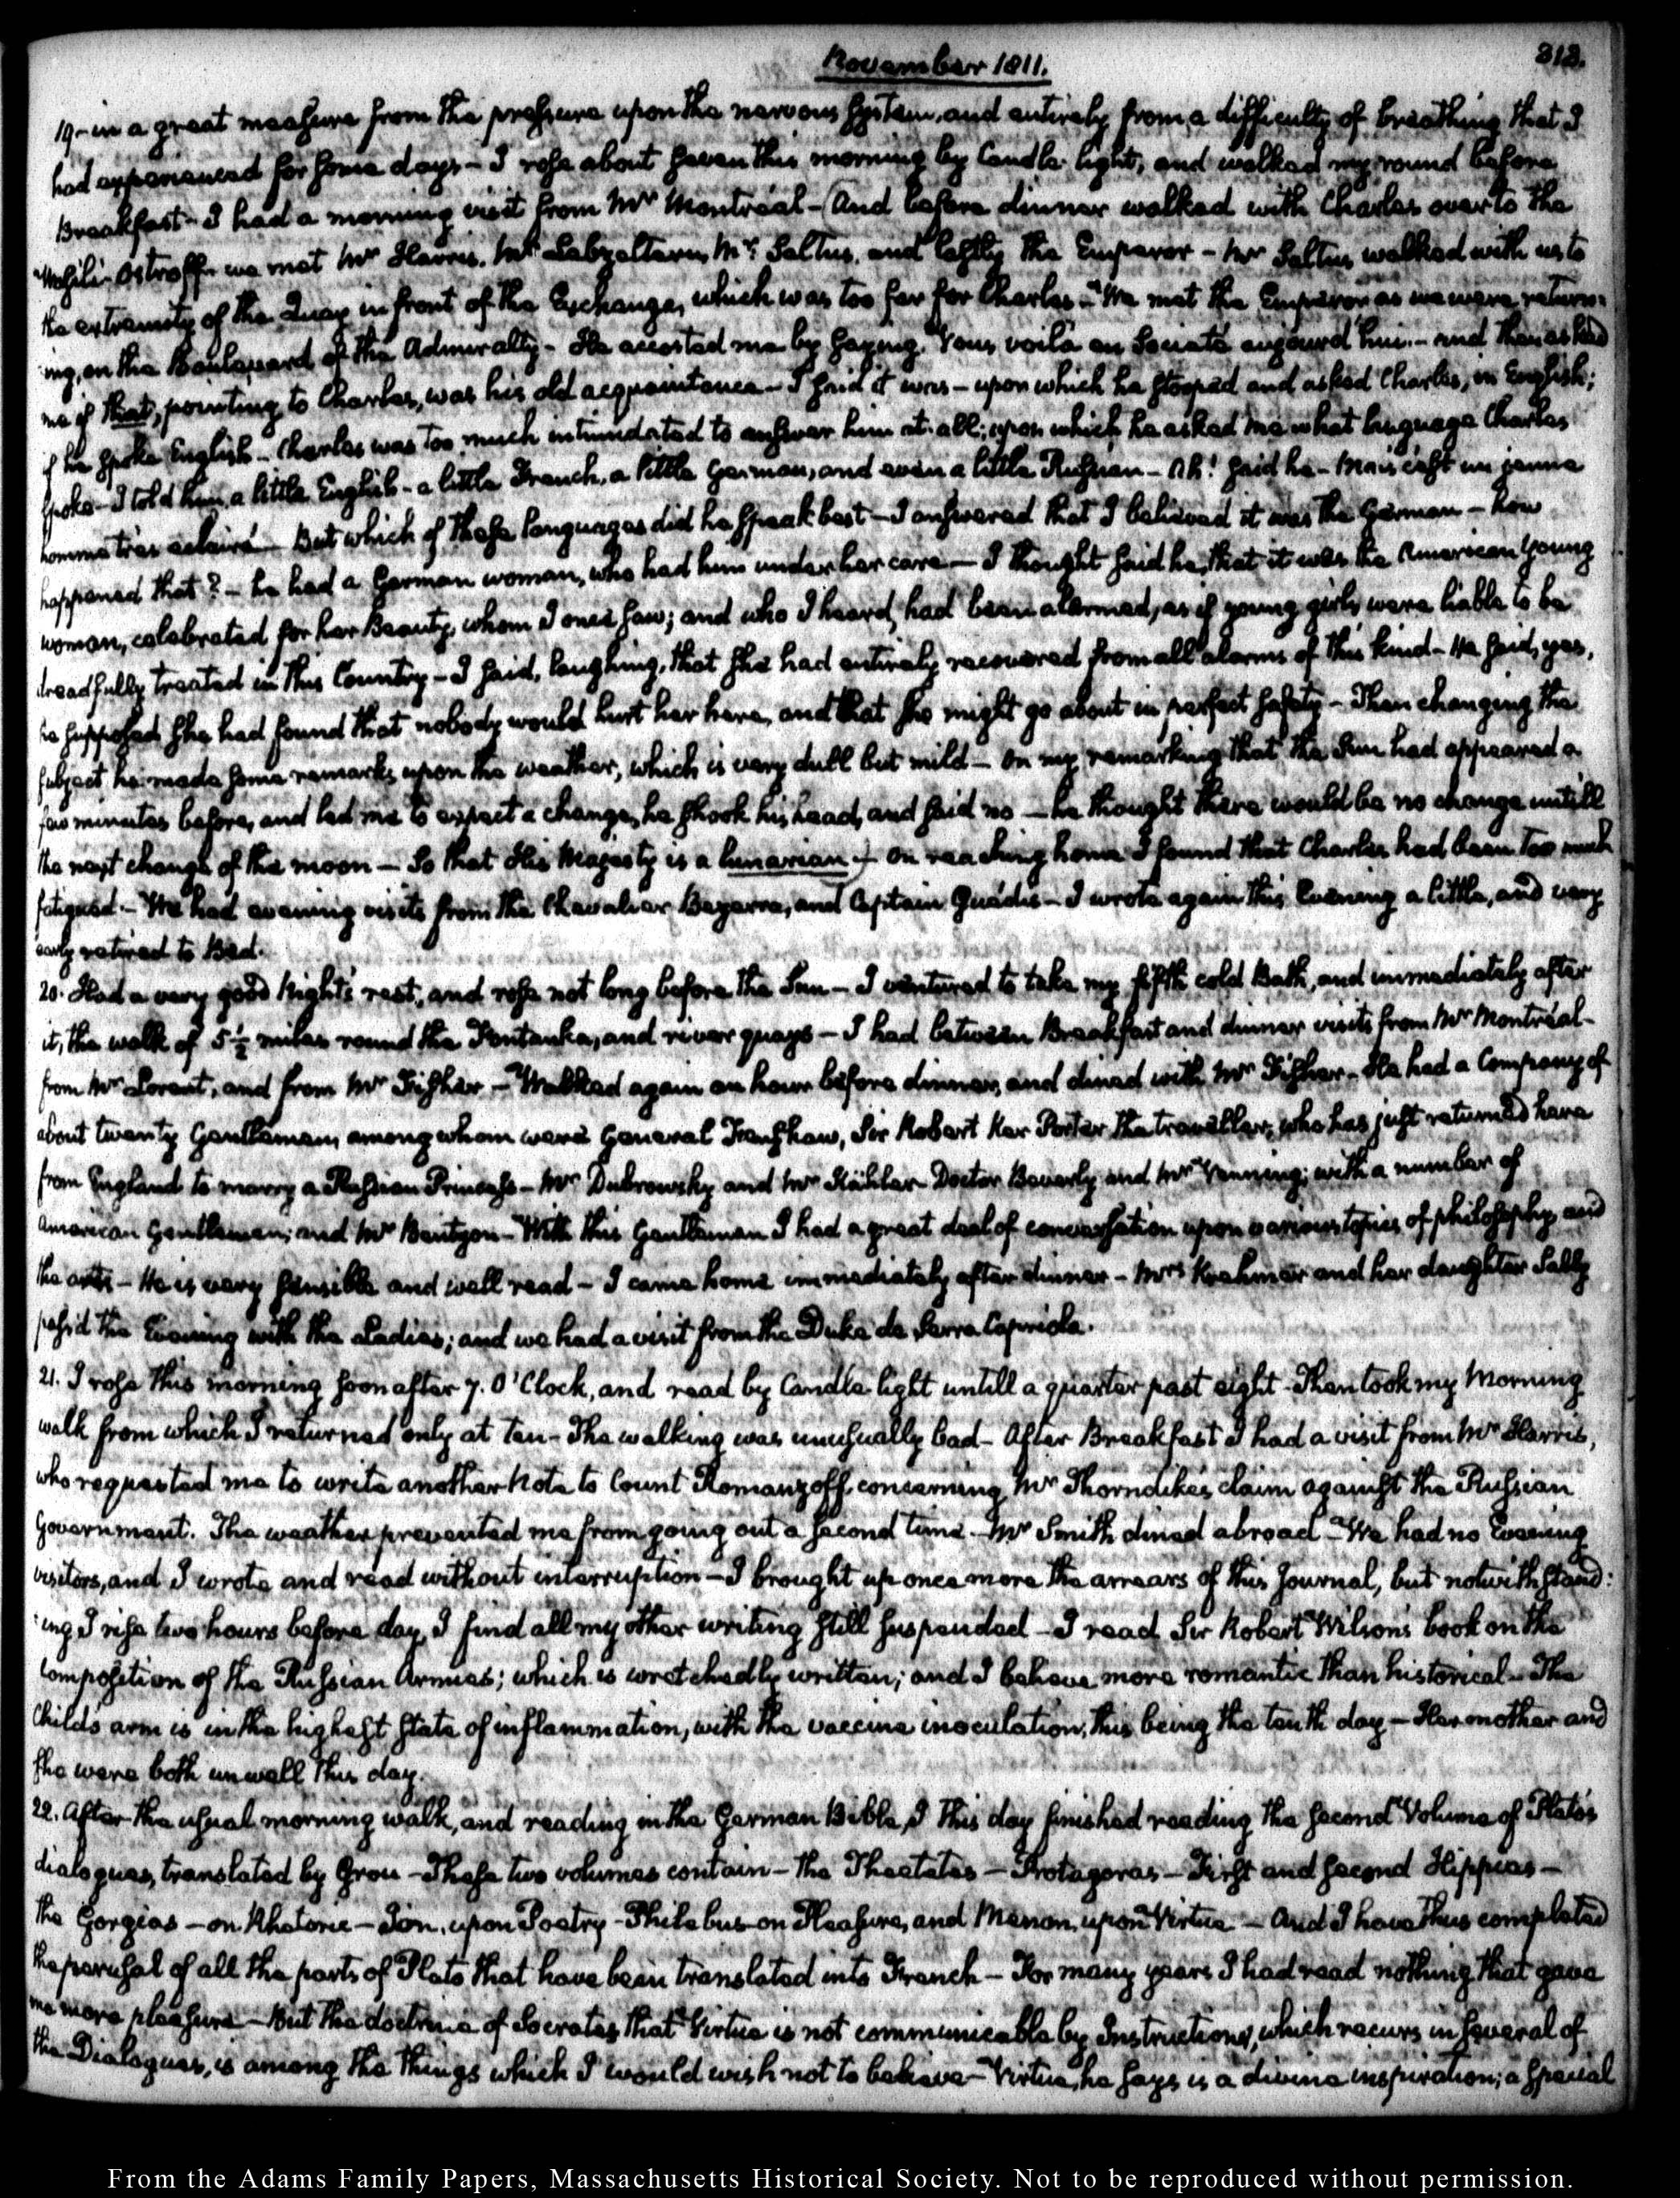 November 1811.
313.
19 - in a great measure from the pressure upon the nervous System, and entirely from a difficulty of breathing that I
had experienced for some days - I rose about seven this morning by Candle light, and walked my round before
Breakfast - I had a morning visit from Mr Montréal - (And before dinner walked with Charles over to the
Wasili-Ostroff - we met Mr Harris, Mr Labzeltern, Mr Saltus, and lastly the Emperor - Mr Saltus walked with us to
the extremity of the Quay in front of the Exchange, which was too far for Charles - We met the Emperor as we were return:
:ing, on the Boulevard of the Admiralty - He accosted me by saying, Vous voilà en Société aujourd'hui. - and then asked
me if that, pointing to Charles, was his old acquaintance - I said it was - upon which he stooped and asked Charles, in English;
if he spoke English - Charles was too much intimidated to answer him at all; upon which he asked me what language Charles
spoke - I told him, a little English - a little French, a little German, and even a little Russian - Ah! said he - Mais c'est un jeune
homme très éclairé - But which of these languages did he speak best - I answered that I believed it was the German - how
happened that? - he had a German woman, who had him under her care - I thought said he, that it was the American young
woman, celebrated for her Beauty, whom I once saw; and who I heard, had been alarmed, as if young girls were liable to be
dreadfully treated in this Country - I said, laughing, that she had entirely recovered from all alarms of this kind - He said, yes,
he supposed she had found that nobody would hurt her here, and that she might go about in perfect safety - Then changing the
subject he made some remarks upon the weather, which is very dull but mild - On my remarking that the Sun had appeared a
few minutes before, and led me to expect a change, he shook his head, and said no - he thought there would be no change untill
the next change of the moon - So that His Majesty is a lunarian -) On reaching home I found that Charles had been too much
fatigued. - We had evening visits from the Chevalier Bezerra, and Captain Guèdés - I wrote again this Evening a little, and very
early retired to Bed.
20. Had a very good Night's rest, and rose not long before the Sun - I ventured to take my fifth cold Bath, and immediately after
it, the walk of 5 1/2 miles round the Fontanka, and river quays - I had between Breakfast and dinner visits from Mr Montréal -
from Mr Lorent, and from Mr Fisher - Walked again an hour before dinner, and dined with Mr Fisher - He had a Company of
about twenty Gentlemen, among whom were General Fenshaw, Sir Robert Ker Porter the traveller, who has just returned here
from England to marry a Russian Princess - Mr Dubrowsky and Mr Köhler - Doctor Beverly and Mr Venning; with a number of
American Gentlemen; and Mr Bentzon - With this Gentleman I had a great deal of conversation upon various topics of philosophy and
the arts - He is very sensible and well read - I came home immediately after dinner - Mrs Krehmer and her daughter Sally
pass'd the Evening with the Ladies; and we had a visit from the Duke de Serra Capriola.
21. I rose this morning soon after 7. O'Clock, and read by Candle light untill a quarter past eight - Then took my Morning
walk from which I returned only at ten - The walking was unusually bad - After Breakfast I had a visit from Mr Harris,
who requested me to write another Note to Count Romanzoff, concerning Mr Thorndike's claim against the Russian
Government. The weather prevented me from going out a second time - Mr Smith dined abroad - We had no Evening
visitors, and I wrote and read without interruption - I brought up once more the arrears of this Journal, but notwithstand:
:ing I rise two hours before day, I find all my other writing still suspended - I read Sir Robert Wilson's book on the
Composition of the Russian Armies; which is wretchedly written; and I believe more romantic than historical - The
Child's arm is in the highest state of inflammation, with the vaccine inoculation, this being the tenth day - Her mother and
she were both unwell this day.
22. After the usual morning walk, and reading in the German Bible, I this day finished reading the second Volume of Plato's
dialogues, translated by Grou - These two volumes contain - the Theetetes - Protagoras - First and second Hippias -
the Gorgias - on Rhetoric - Ion, upon Poetry - Philebus - on Pleasure, and Menon, upon Virtue - And I have thus completed
the perusal of all the parts of Plato that have been translated into French - For many years I had read nothing that gave
me more pleasure - But the doctrine of Socrates that Virtue is not communicable by Instructions, which recurs in several of
the Dialogues, is among the things which I would wish not to believe - Virtue, he says is a divine inspiration; a special
From the Adams Family Papers, Massachusetts Historical Society. Not to be reproduced without permission.